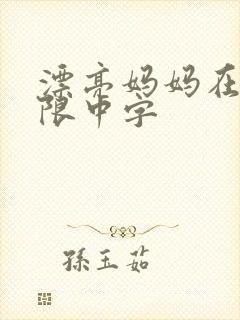 漂亮妈妈在
限中字
孫玉茹